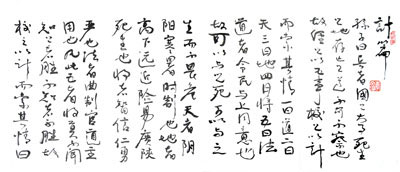 計篇
孫子曰兵者國之大事死生
之地存亡之道不可不察也
故經之以五事校之以計
而索其情一曰道二曰
天三曰地四曰將五曰法
道者令民與上同意也
故可以與之死可以與之
生而不畏天者陰
陽寒暑時制也地者
高下遠近險易廣狹
死生也將者智信仁勇
嚴也法者曲制官道主
用也凡此五者將莫不聞
知之者勝不知者不勝故
校之以計而索其情曰